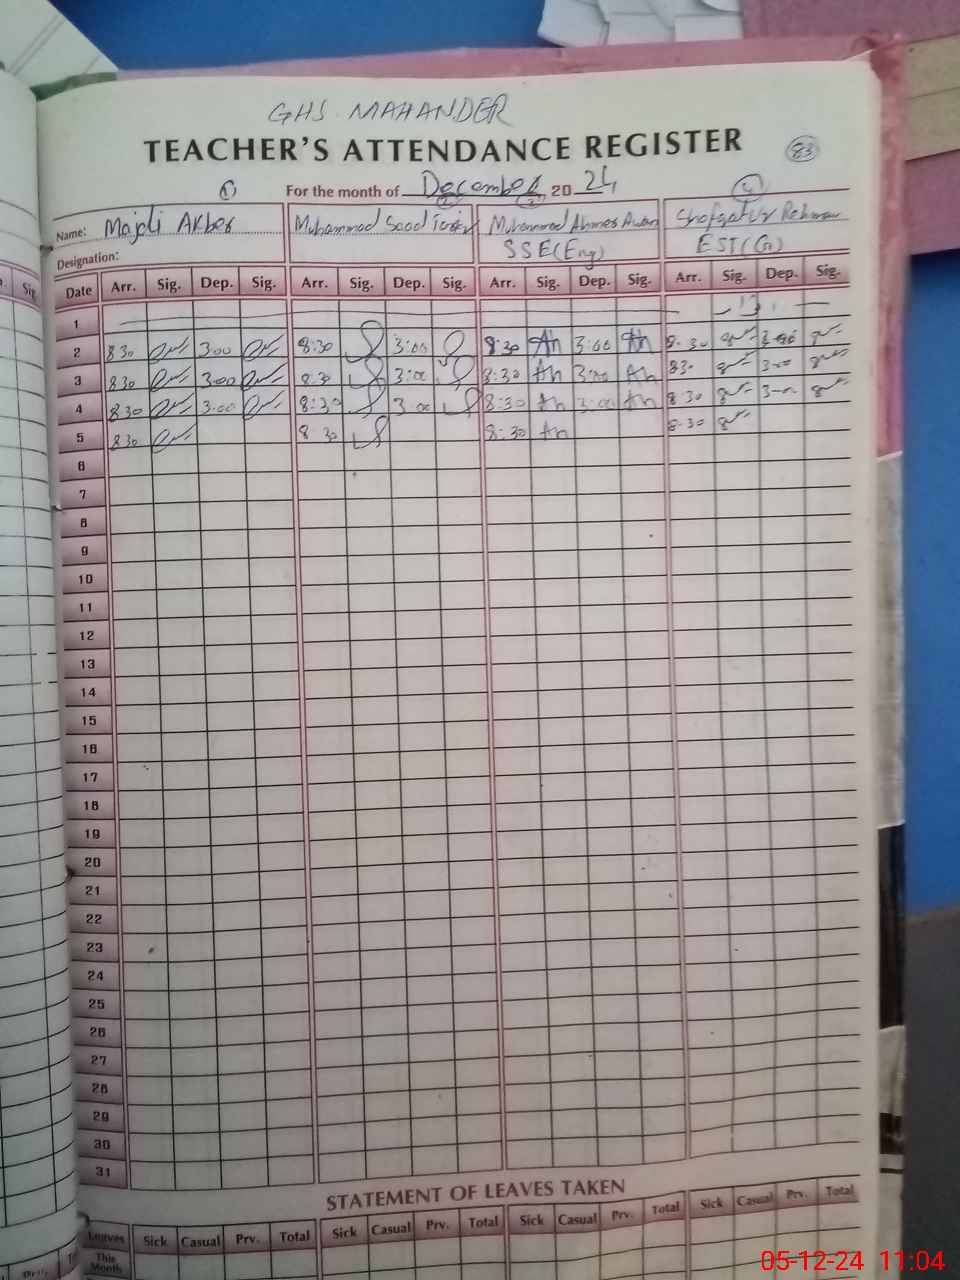 GHS. MAHANDER
TEACHER'S ATTENDANCE REGISTER
83
For the month of December 2024
1 2 3 4
Name: Majdi Akber Muhammad Saad Muhammad Ahmer Awan Shafqat Ur Rehman
Designation: SSE(Eng) EST(G)
Date Arr. Sig. Dep. Sig. Arr. Sig. Dep. Sig. Arr. Sig. Dep. Sig. Arr. Sig. Dep. Sig.
1
2 8 30 3:00 8:30 3:00 8:30 Ah 3:00 Ah 8:30 3:00
3 8 30 3:00 8:30 3:00 8:30 Ah 3:00 Ah 830 3-00
4 8 30 3:00 8:30 3:00 8:30 Ah 3:00 Ah 8:30 3-00
5 8 30 8:30 8:30 Ah 8:30
6
7
8
9
10
11
12
13
14
15
16
17
18
19
20
21
22
23
24
25
26
27
28
29
30
31
STATEMENT OF LEAVES TAKEN
Leaves Sick Casual Prv. Total Sick Casual Prv. Total Sick Casual Prv. Total Sick Casual Prv. Total
This Month
05-12-24 11:04